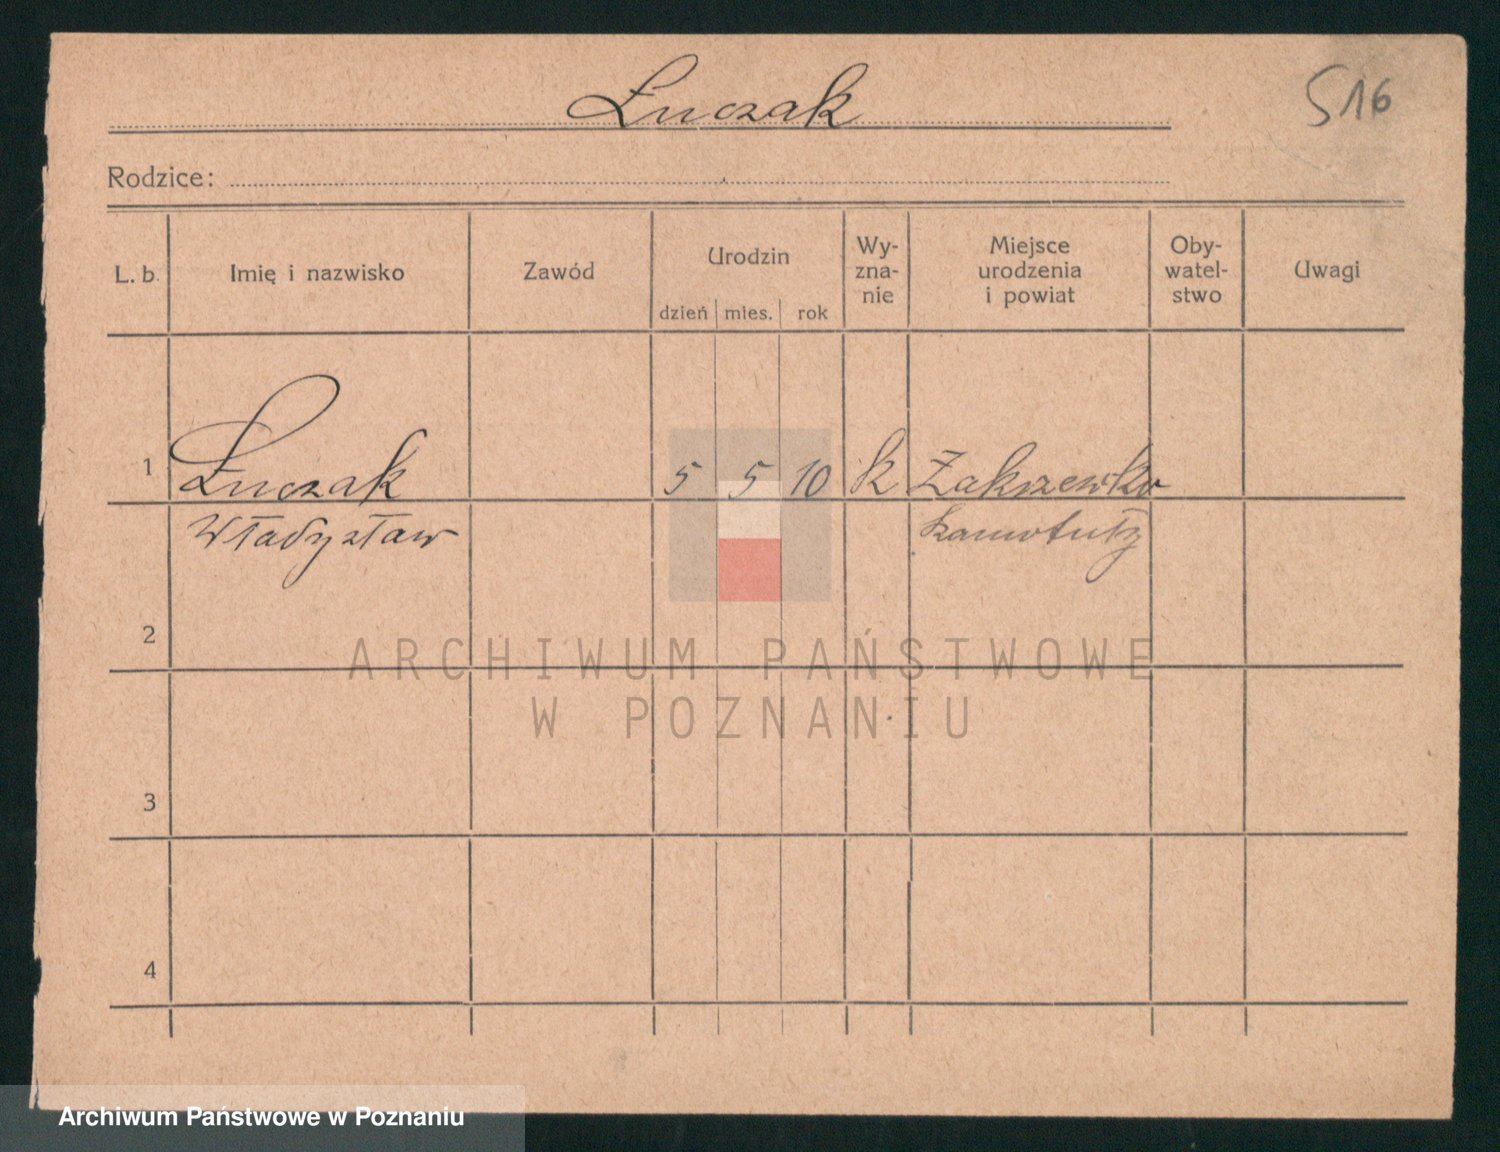 Łuczak
516
Rodzice:
L. b. Imię i nazwisko Zawód Urodzin Wy-zna-nie Miejsce urodzenia i powiat Oby-watel-stwo Uwagi
dzień mies. rok
1 Łuczak 5 5 10 k Zakrzewko
Władysław
2
ARCHIWUM PAŃSTWOWE
W POZNANIU
3
4
Archiwum Państwowe w Poznaniu